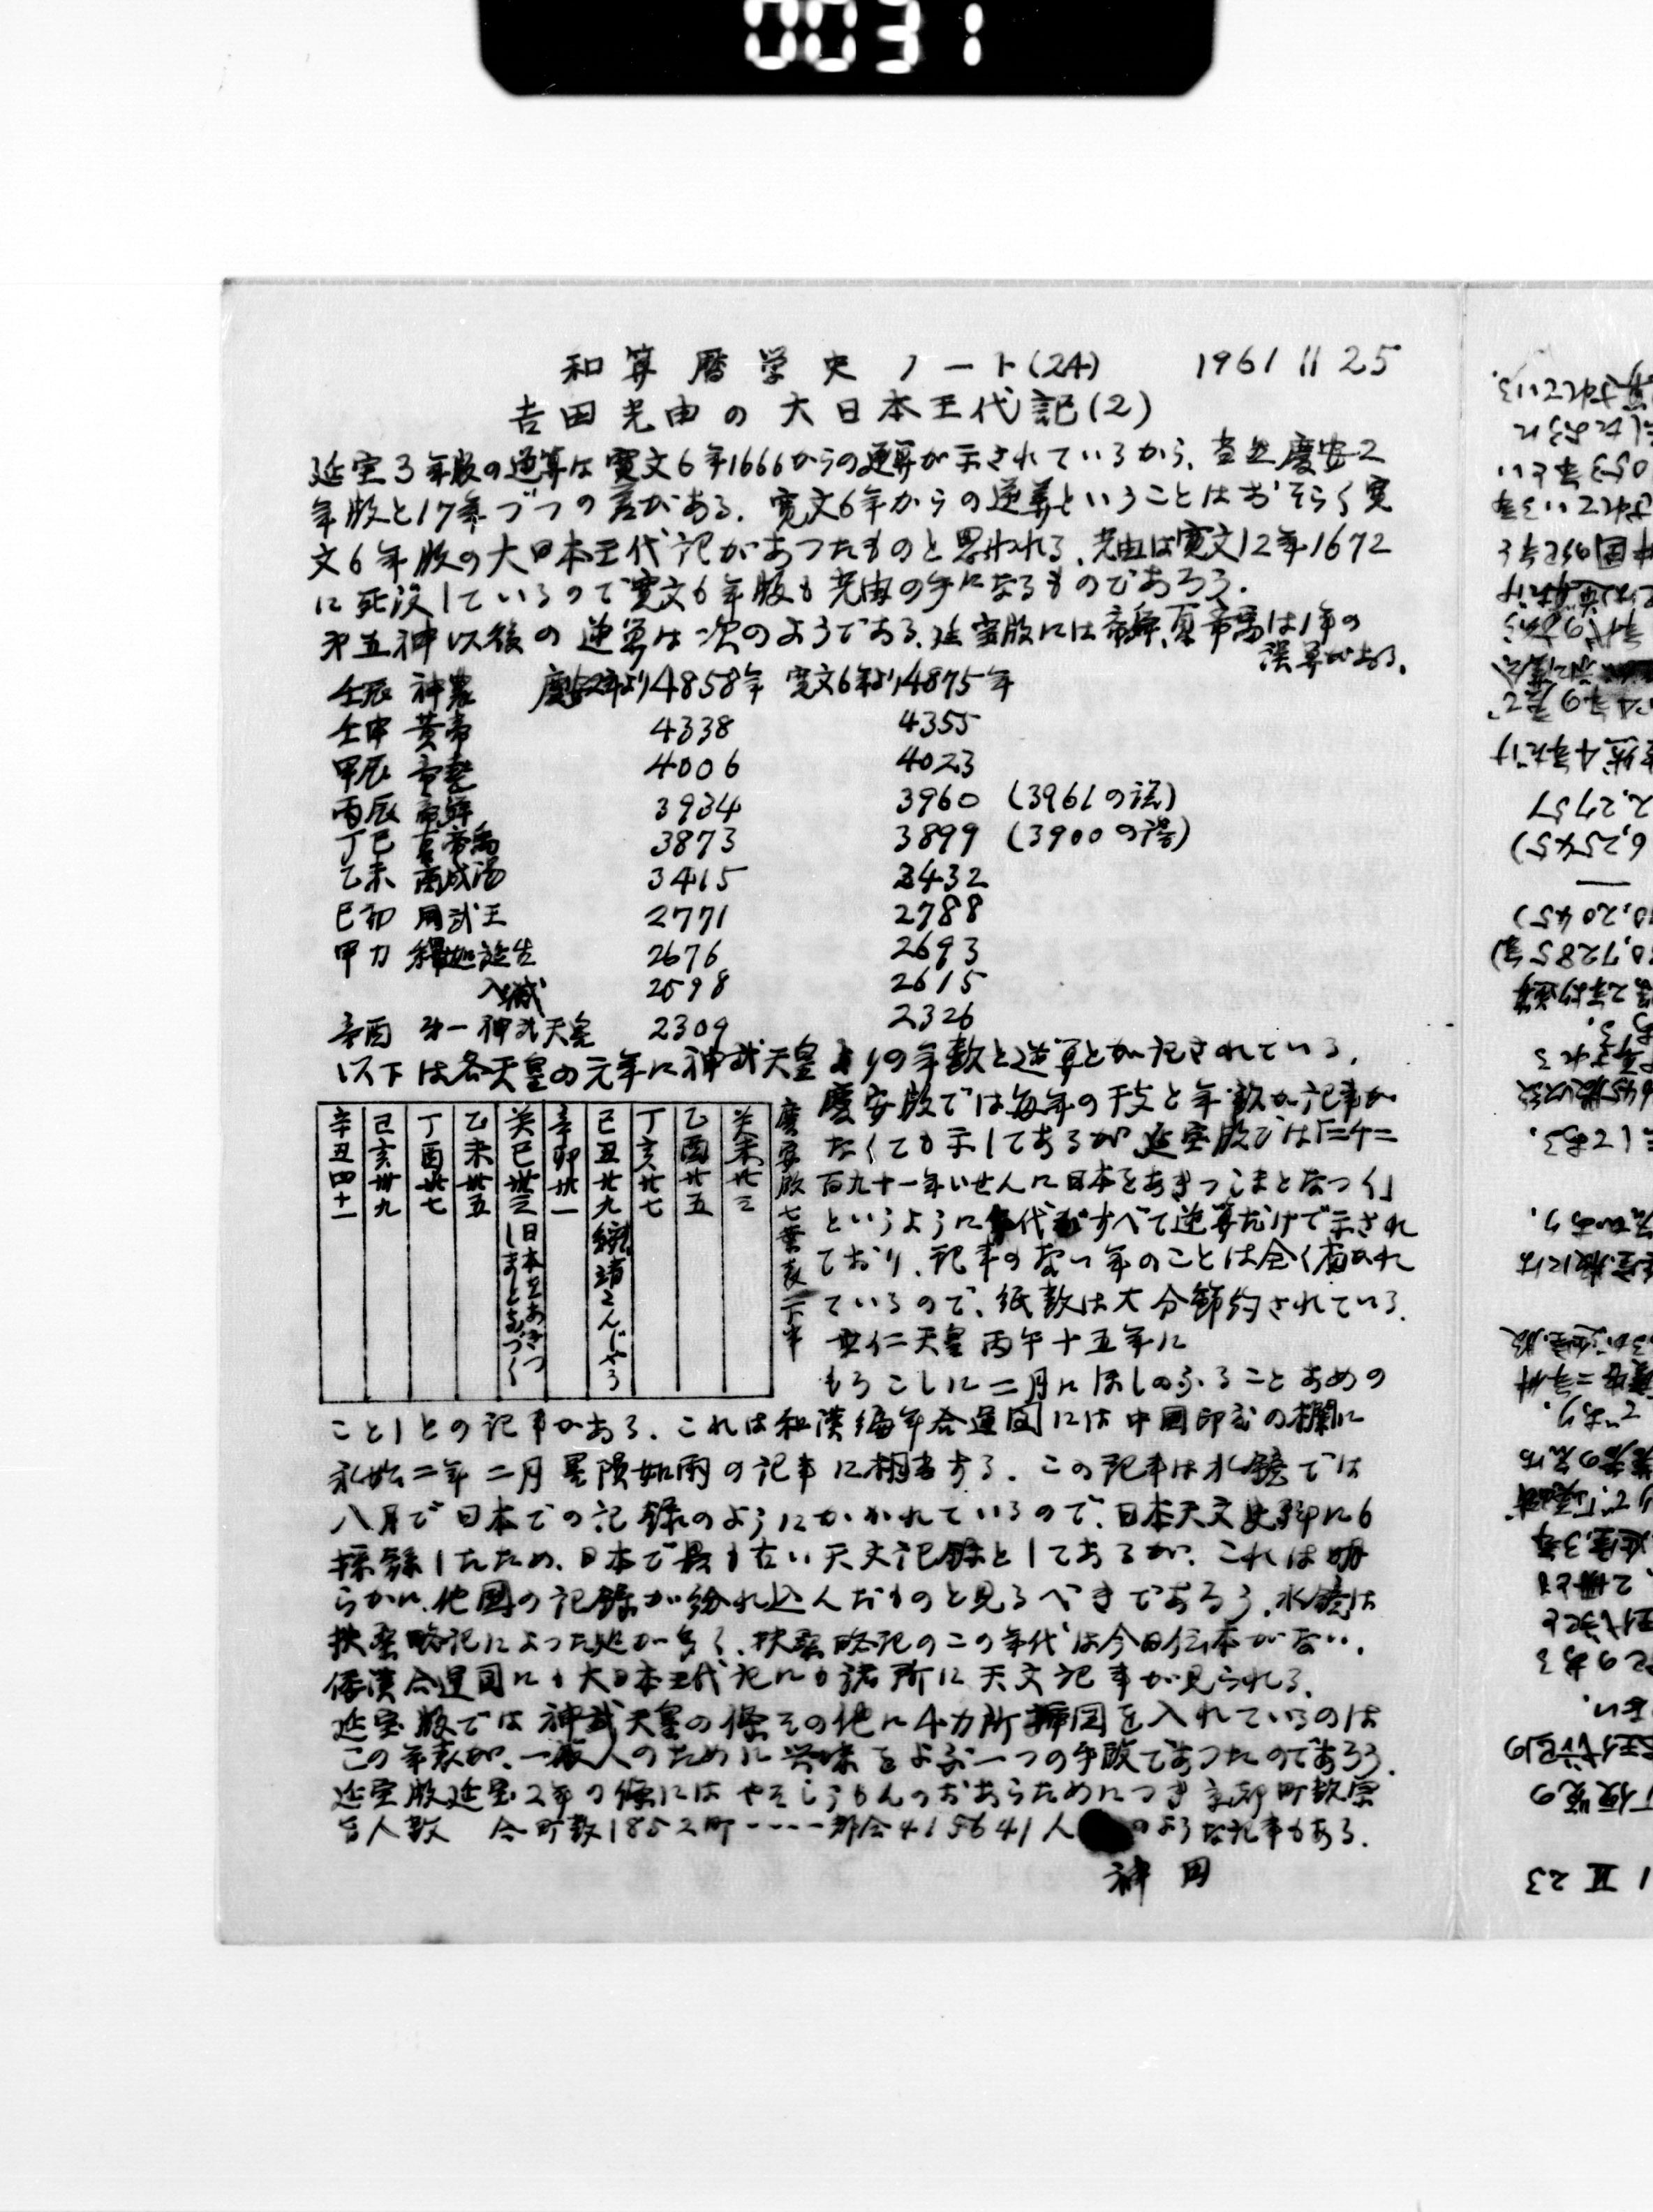 0031
和算暦学史ノート(24) 1961 11 25
吉田光由の大日本王代記(2)
延宝3年版の逆算は寛文6年1666からの逆算が示されているから、当然慶安2
年版と17年づつの差がある. 寛文6年からの逆算ということはおそらく寛
文6年版の大日本王代記があつたものと思われる. 光由は寛文12年1672
に死没しているので寛文6年版も光由の手になるものであろう.
才五神以後の逆算は次のようである. 延宝版には帝舜、夏帝禹は1年の
誤算がある.
壬辰 神農 慶安2年より4858年 寛文6年より4875年
壬申 黄帝 4338 4355
甲辰 帝堯 4006 4023
丙辰 帝舜 3934 3960 (3961の誤)
丁巳 夏帝禹 3873 3899 (3900の誤)
乙未 商成湯 3415 3432
己卯 周武王 2771 2788
甲刀 釋迦誕生 2676 2693
入滅 2598 2615
辛酉 才一神武天皇 2309 2326
以下は各天皇の元年に神武天皇よりの年数と逆算とが記されている.
慶安版では毎年の干支と年数が記事が
なくても示してあるが 延宝版では「二千二
百九十一年いせんに日本をあきつしまとなつく」
というように年代がすべて逆算だけで示され
ており、記事のない年のことは全く省かれ
ているので、紙数は大分節約されている.
垂仁天皇 丙午十五年に
もろこしに二月にほしのふることあめの
慶安版七葉表下半
癸未廿三
乙酉廿五
丁亥廿七
己丑廿九 綏靖たんじやう
辛卯卅一
癸巳卅三 日本をあきつしまとなづく
乙未卅五
丁酉卅七
己亥卅九
辛丑四十一
ことしとの記事がある. これは和漢編年合運図には中国印度の欄に
永始二年二月 星隕如雨の記事に相当する. この記事は水鏡では
八月で日本での記録のようにかかれているので、日本天文史料にも
採録したため、日本で最も古い天文記録としてあるが、これは明
らかに、他国の記録が紛れ込んだものと見るべきであろう. 水鏡は
扶桑略記によった処が多く、扶桑略記のこの年代は今日伝本がない.
倭漢合運図にも大日本王代記にも諸所に天文記事が見られる.
延宝版では神武天皇の條その他に4カ所挿図を入れているのは
この年表が、一般人のために興味をよぶ一つの手段であつたのであろう.
延宝版延宝2年の條には やそしうもんのおあらためにつき京都町数宗
旨人数 今町数1852町----都合415641人のような記事もある.
神田